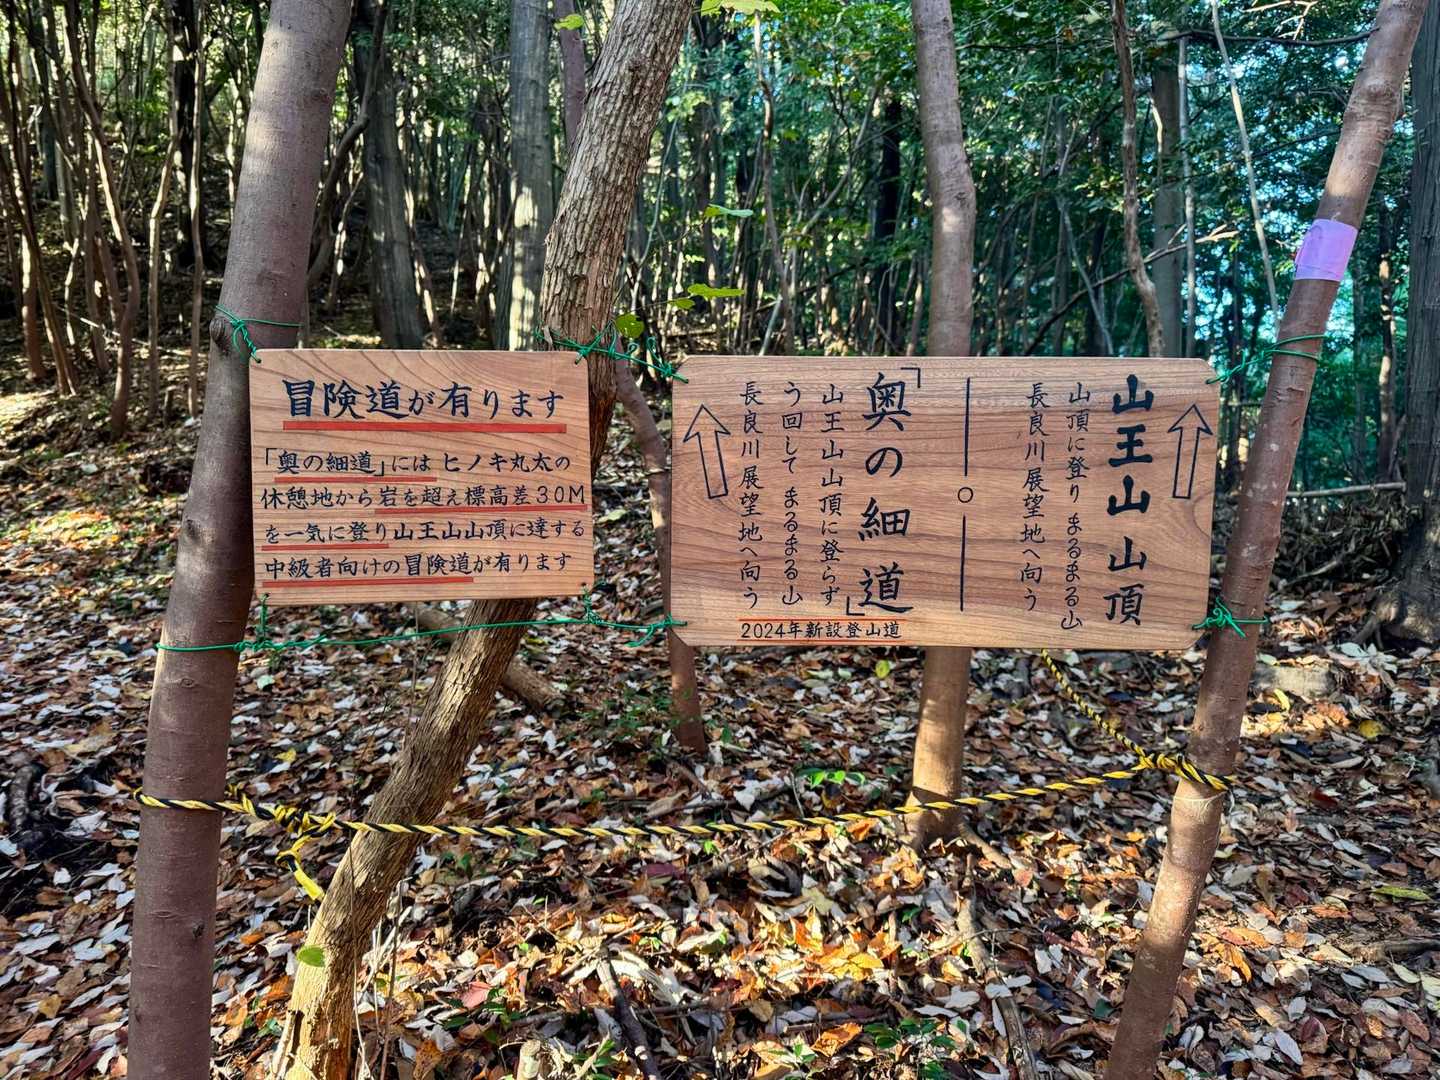 冒険道が有ります
「奥の細道」には ヒノキ丸太の
休憩地から岩を超え標高差30M
を一気に登り山王山山頂に達する
中級者向けの冒険道が有ります
山王山 山頂
山頂に登り まるまる山
長良川展望地へ向う
「奥の細道」
山王山山頂に登らず
う回して まるまる山
長良川展望地へ向う
2024年新設登山道